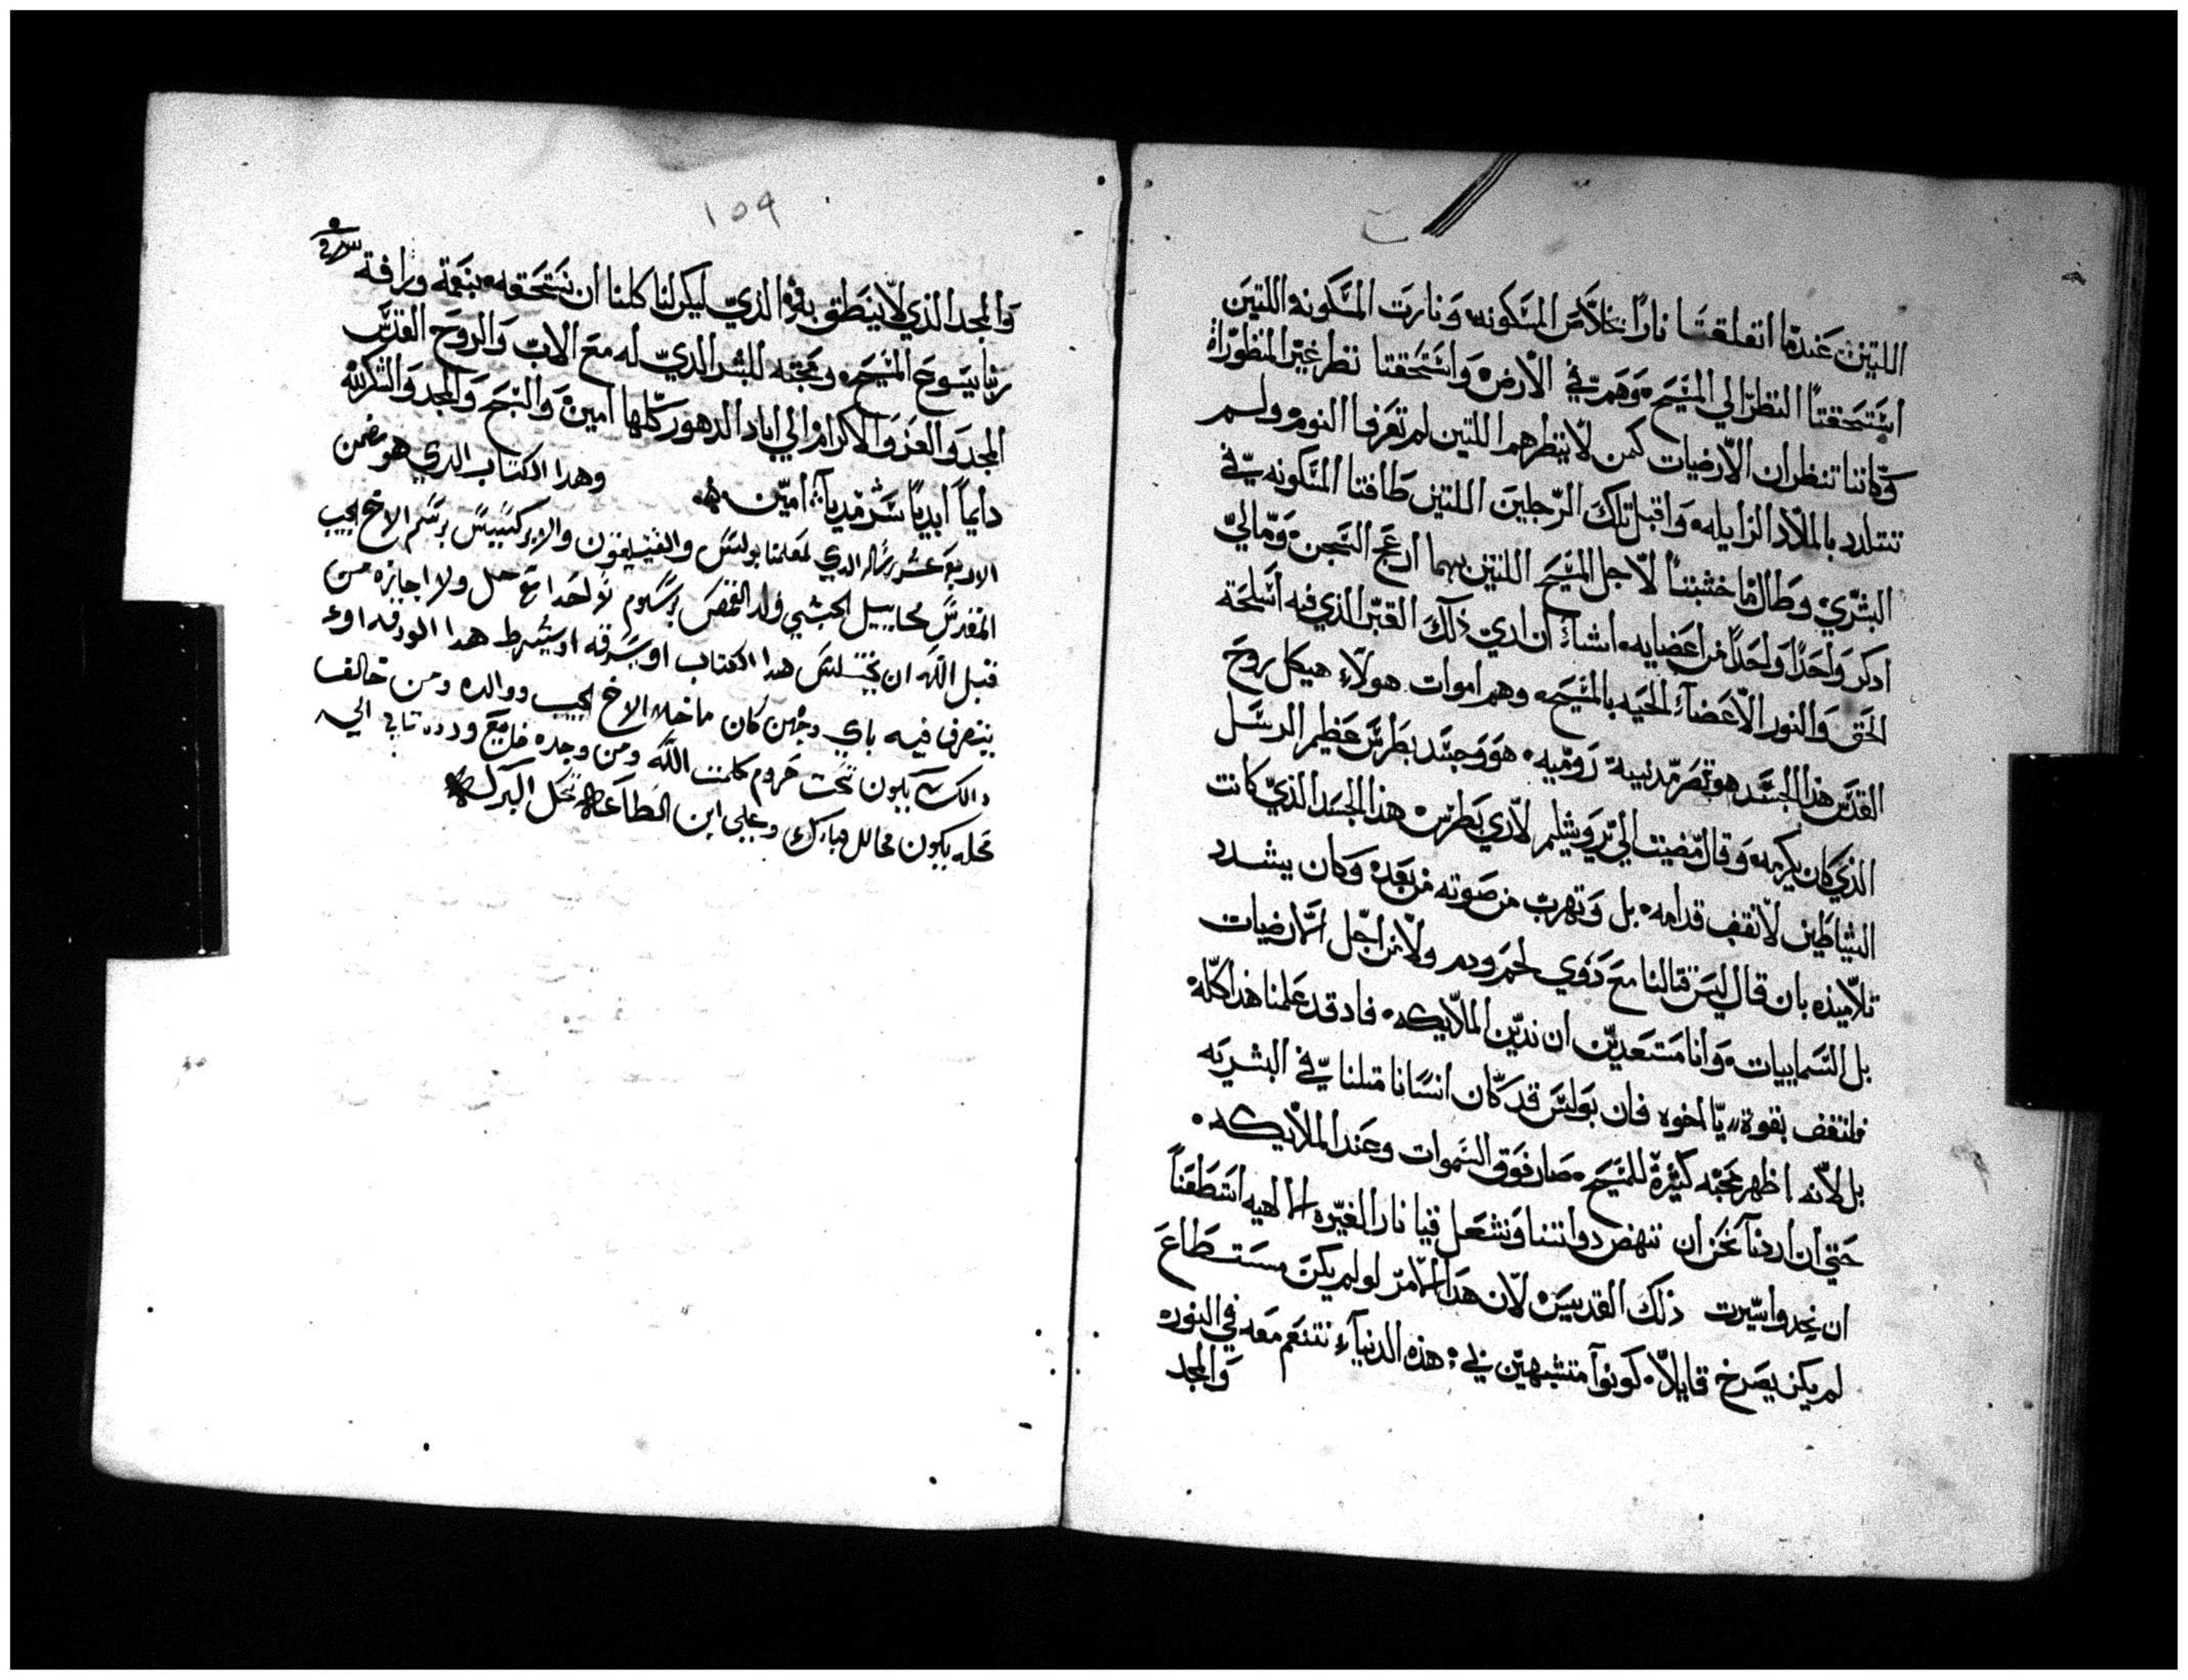 اللتين عندما انغلقتا نارًا خلاص المسكونه وَنارت المسكونه اللتين
استحقتا النظر الي المسيح وَهم في الارض وَاستحقتا نظر غير المنظوراة
وكانتا تنظران الارضيات كمن لا ينظرهم اللتين لم تعرفا النوم ولم
تتلدد بالملاد الزايله وَاقبل تلك الرّجلين اللتين طافتا المسكونه في
البشرَي وطال ما خشبتا لاجل المسيح اللتين بهما ارعج السجن وَمالي
ادكر وَاحدًا وَاحدًا من اعضايه انشاء ان اري ذلك القبر الذي فيه اسلحة
الحق وَالنور الاعضاء الحيه بالمسيح وهم اموات هولاء هيكل روح
القدس هذا الجسد هو بقصر مدينة رَوميه هوَ وجسد بطرس عظيم الرسل
الذي كان يكرمه وَقال مضيت الي يرَوشليم لاري بطرس هذا الجسد الذي كانت
الشياطين لا تقف قدامه بل وَتهرب من صَوته من بعد وَكان يشدد
تلاميذه بان قال ليس قتالنا مع دَوي لحم ودم ولا من اجل الارضيات
بل السمايبات وَانا مستعدين ان ندين الملايكه فاد قد علمنا هدا كله
فلنقف بقوة يا اخوه فان بَولس قد كان انسانا متلنا في البشريه
بل لانه اظهر محبه كثيرة للمسيح صار فوَق السموات وعند الملايكه
حتي ان اردنا نحن ان ننهض دواتنا وَنشعل فينا نار الغيره الالهيه استطعنا
ان نحدوا سيرت ذلك القديس لان هدا الامر لو لم يكن مستطاع
لم يكن يصرخ قايلا كونوا متشبهين في هذه الدنياء نتنعم معه في النور
وَالمجد
١٥٩
وَالمجد الذي لا ينطق به الذي ليكن لنا كلنا ان نستحقه بنعمة ورافة
ربنا يسوع المسيح ومحبته للبشر الذي له مع الاب وَالروح القدس
المجد وَالعز وَالاكرام والي اباد الدهور كلها امين وَالسبح وَالمجد وَالتكرمه
دايماً ابدياً سرمدياً امين وهدا الكتاب الدي هو يضمن
الاربع عشر رساله الدي لمعلمنا بولس والقتاليقون والابركسيس برسم الاخ الحبيب
المقدس مخاييل الحبشي ولد القمص برسوم لاحدا مع حل ولا اجازه من
قبل الله ان يختلس هدا الكتاب او يسرقه او يشرط هدا الورقه او
يتصرف فيه باي وجهن كان ما خلا الاخ الحبيب ووالده ومن خالف
دالك يكون تحت حروم كلمت الله ومن وجده ضايع ورده تاني الي
محله يكون محالل مبارك وعلي ابن الطاعه تحل البركه